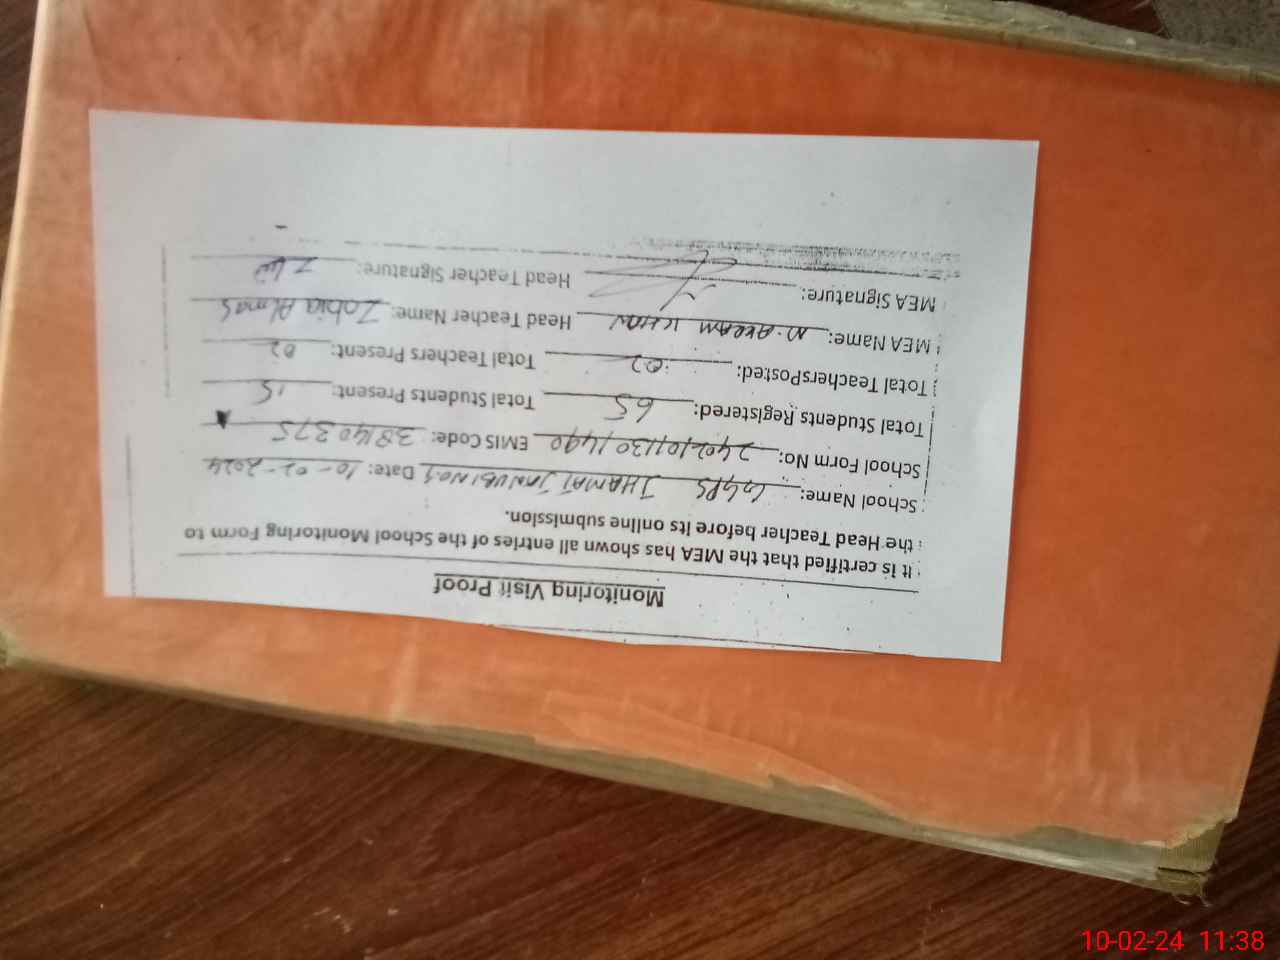 Monitoring Visit Proof
It is certified that the MEA has shown all entries of the School Monitoring Form to
the Head Teacher before its online submission.
School Name: GGPS JHAMAT JANUBI NO.1 Date: 10-02-2024
School Form No: 24021011301490 EMIS Code: 38140375
Total Students Registered: 65 Total Students Present: 15
Total TeachersPosted: 02 Total Teachers Present: 02
MEA Name: M. AKRAM KHAN Head Teacher Name: Zobia Almas
MEA Signature: Head Teacher Signature:
10-02-24 11:38